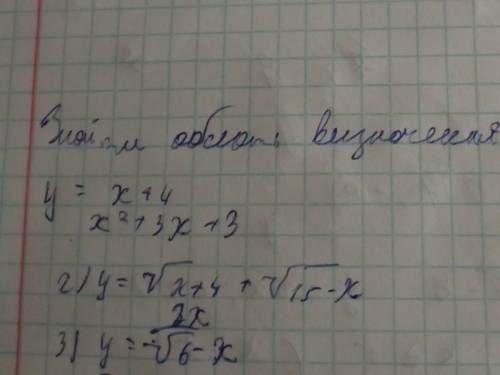 Знайти область визначення
y = x+4
x²+3x+3
2) y = √x+4 + √15-x
2x
3) y = √6-x